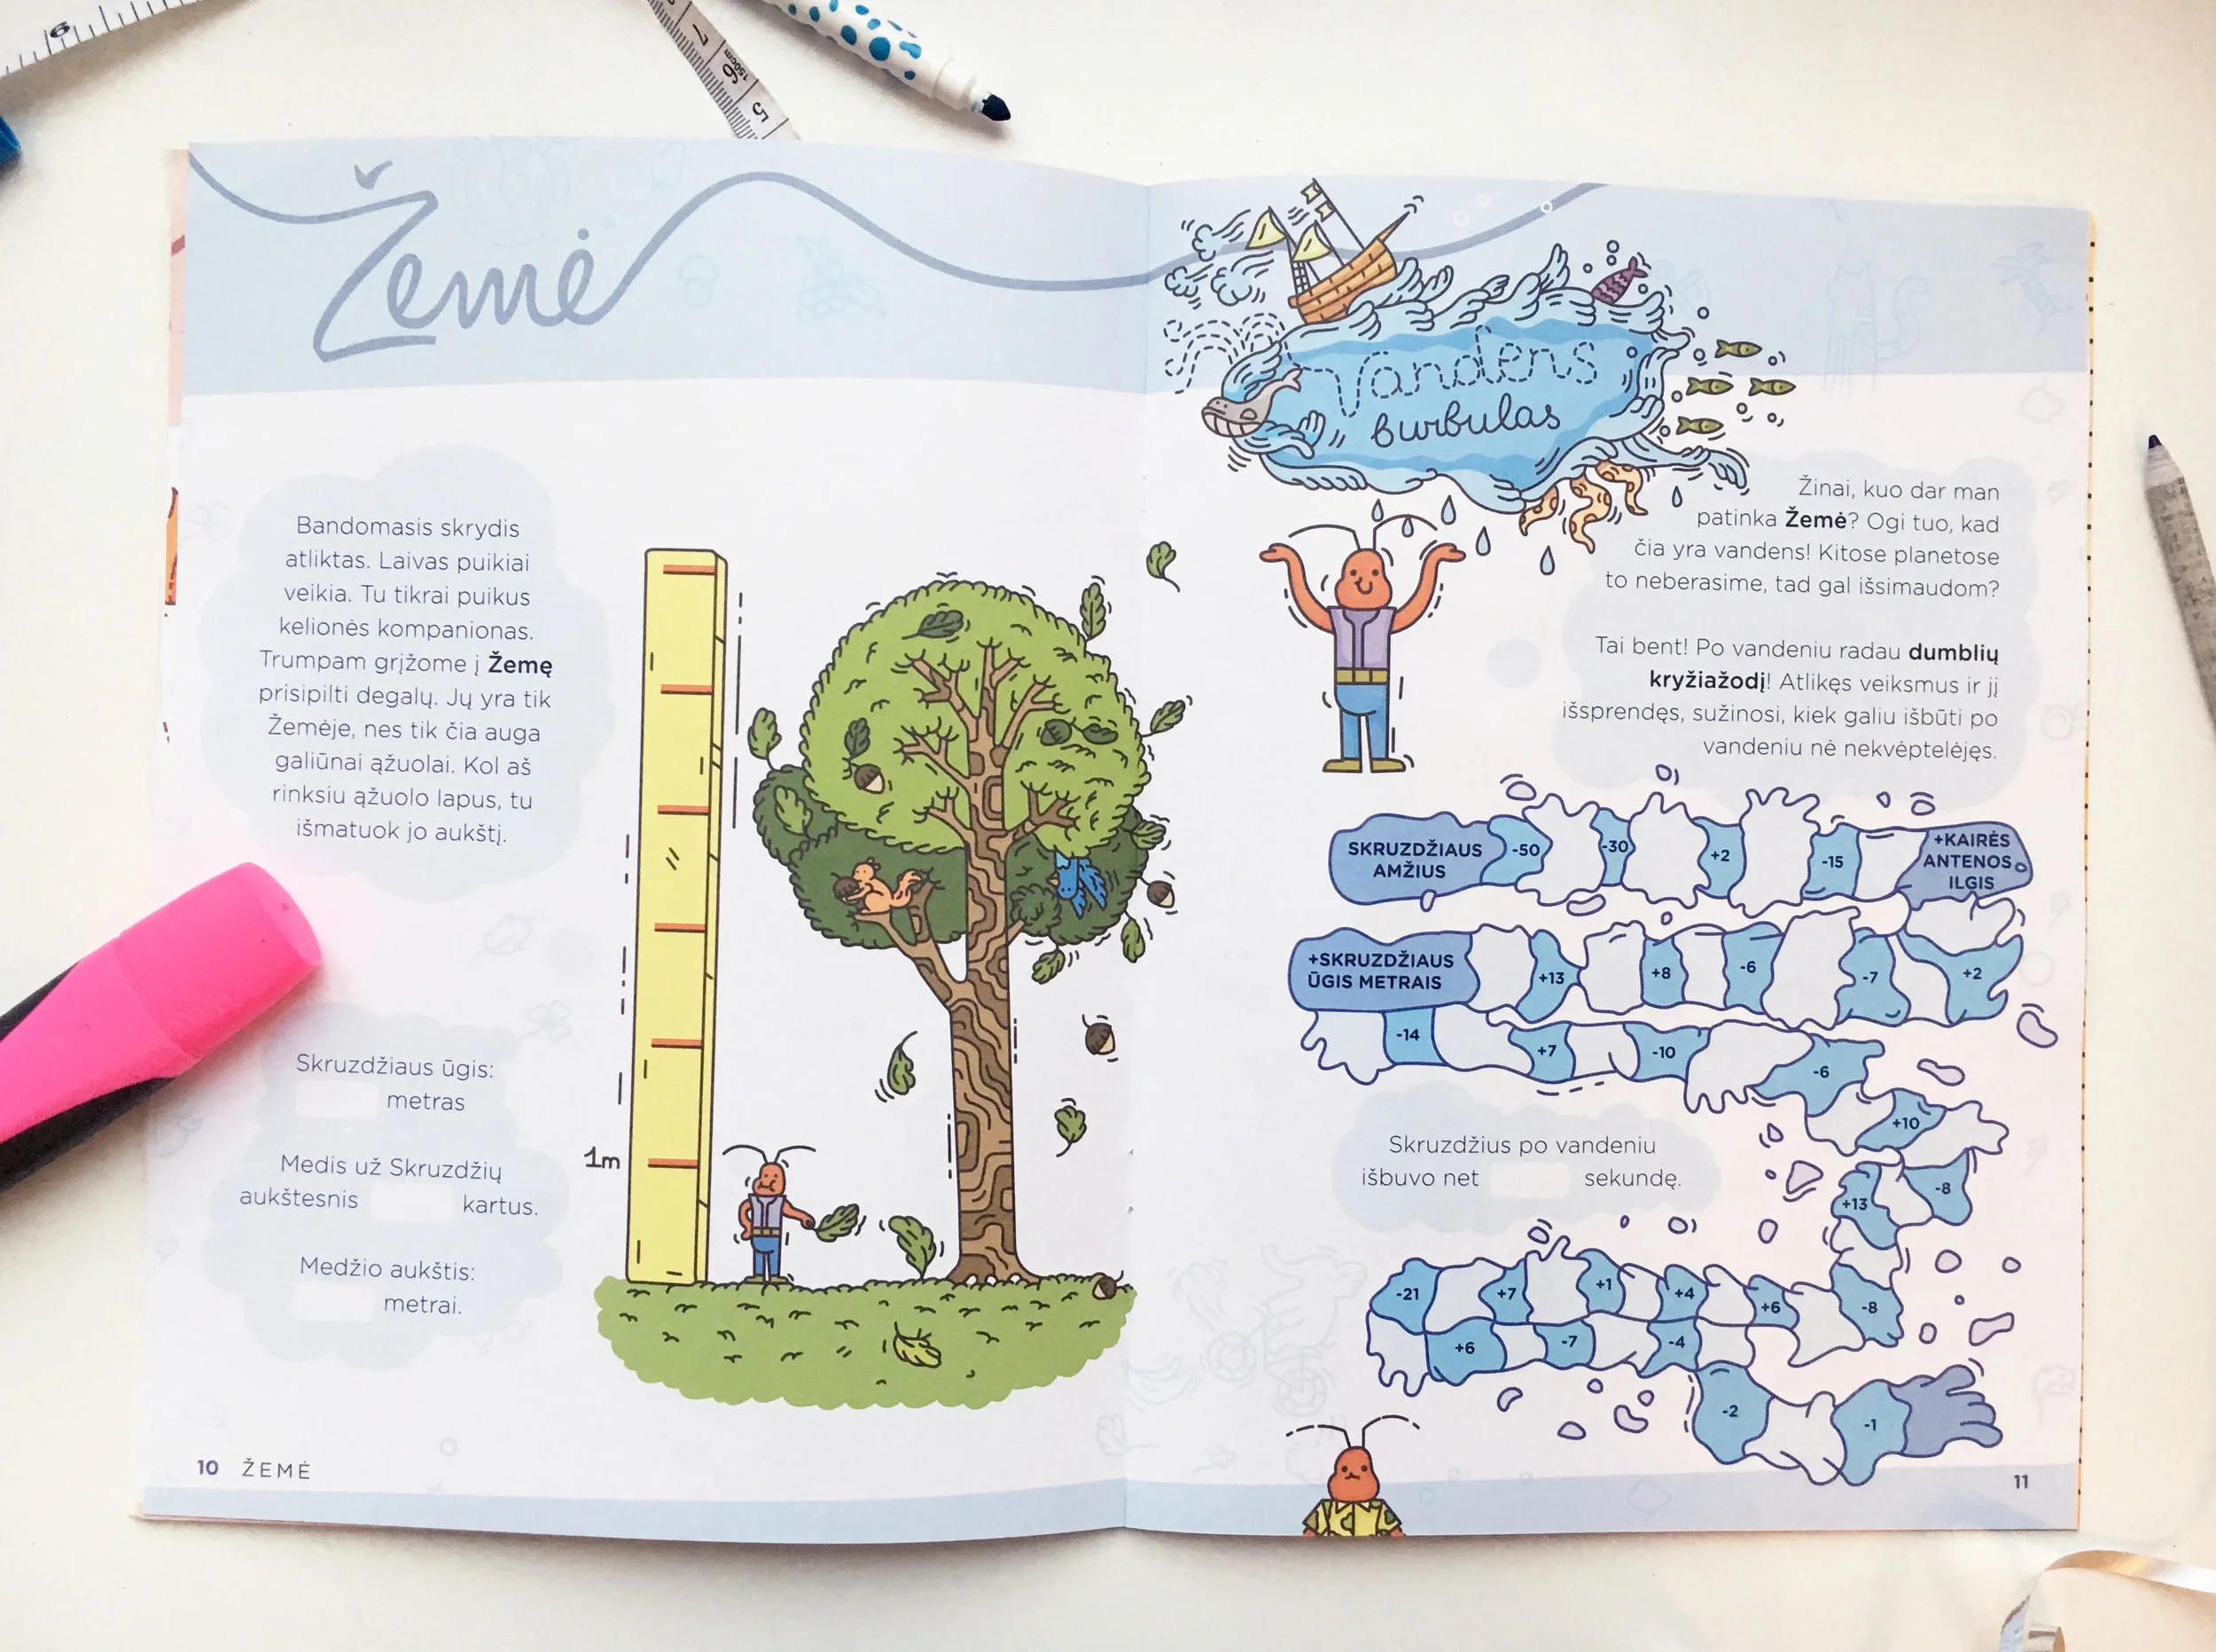 6
7
150cm
6
5
Žemė
Bandomasis skrydis
atliktas. Laivas puikiai
veikia. Tu tikrai puikus
kelionės kompanionas.
Trumpam grįžome į Žemę
prisipilti degalų. Jų yra tik
Žemėje, nes tik čia auga
galiūnai ąžuolai. Kol aš
rinksiu ąžuolo lapus, tu
išmatuok jo aukštį.
Skruzdžiaus ūgis:
metras
Medis už Skruzdžių
aukštesnis kartus.
Medžio aukštis:
metrai.
1m
10 ŽEMĖ
Vandens
burbulas
Žinai, kuo dar man
patinka Žemė? Ogi tuo, kad
čia yra vandens! Kitose planetose
to neberasime, tad gal išsimaudom?
Tai bent! Po vandeniu radau dumblių
kryžiažodį! Atlikęs veiksmus ir jį
išsprendęs, sužinosi, kiek galiu išbūti po
vandeniu nė nekvėptelėjęs.
SKRUZDŽIAUS
AMŽIUS
-50
-30
+2
-15
+KAIRĖS
ANTENOS
ILGIS
+SKRUZDŽIAUS
ŪGIS METRAIS
+13
+8
-6
-7
+2
-14
+7
-10
-6
+10
-8
+13
Skruzdžius po vandeniu
išbuvo net sekundę.
-21
+7
+1
+4
+6
-8
+6
-7
-4
-2
-1
11